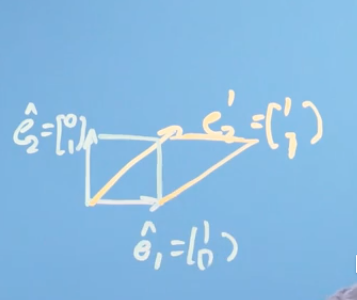 ê₂ = [0 1] e₂' = (1 1)
ê₁ = [1 0)